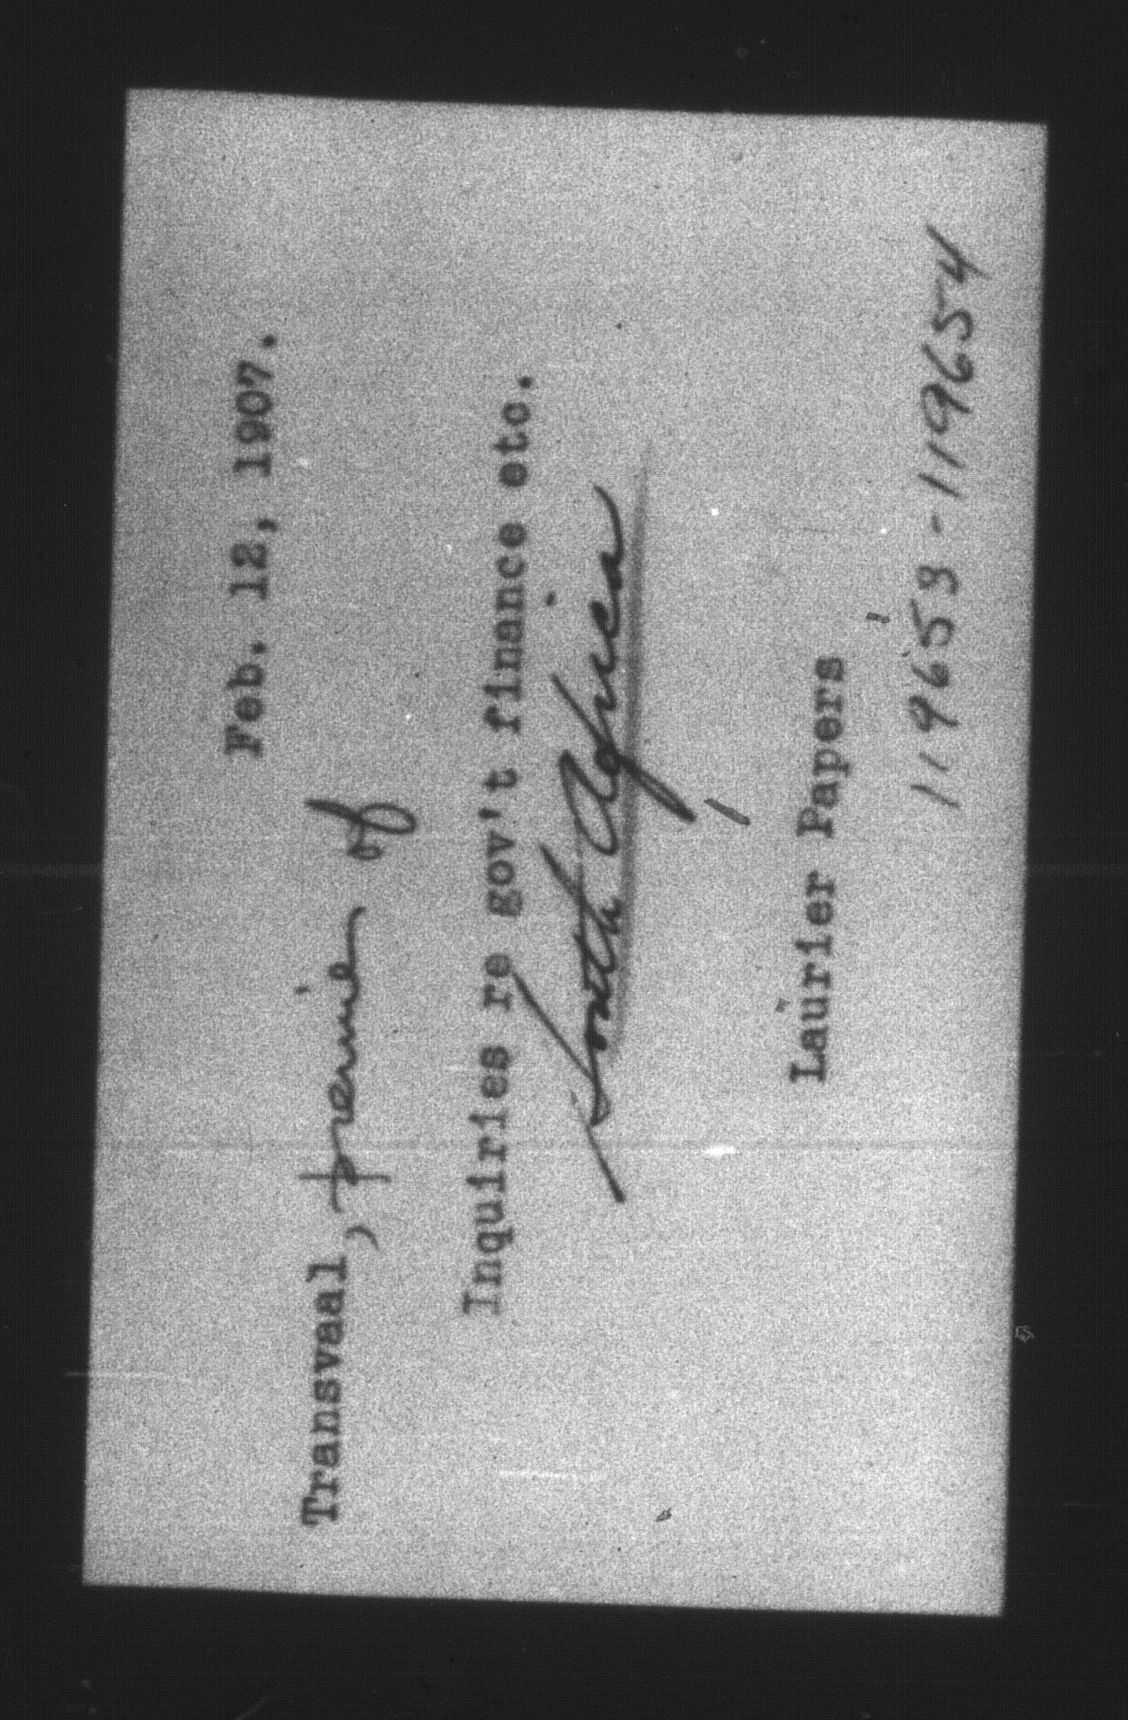 Feb. 12, 1907.
Transvaal, premier of
Inquiries re gov't finance etc.
South Africa
Laurier Papers
119653-119654